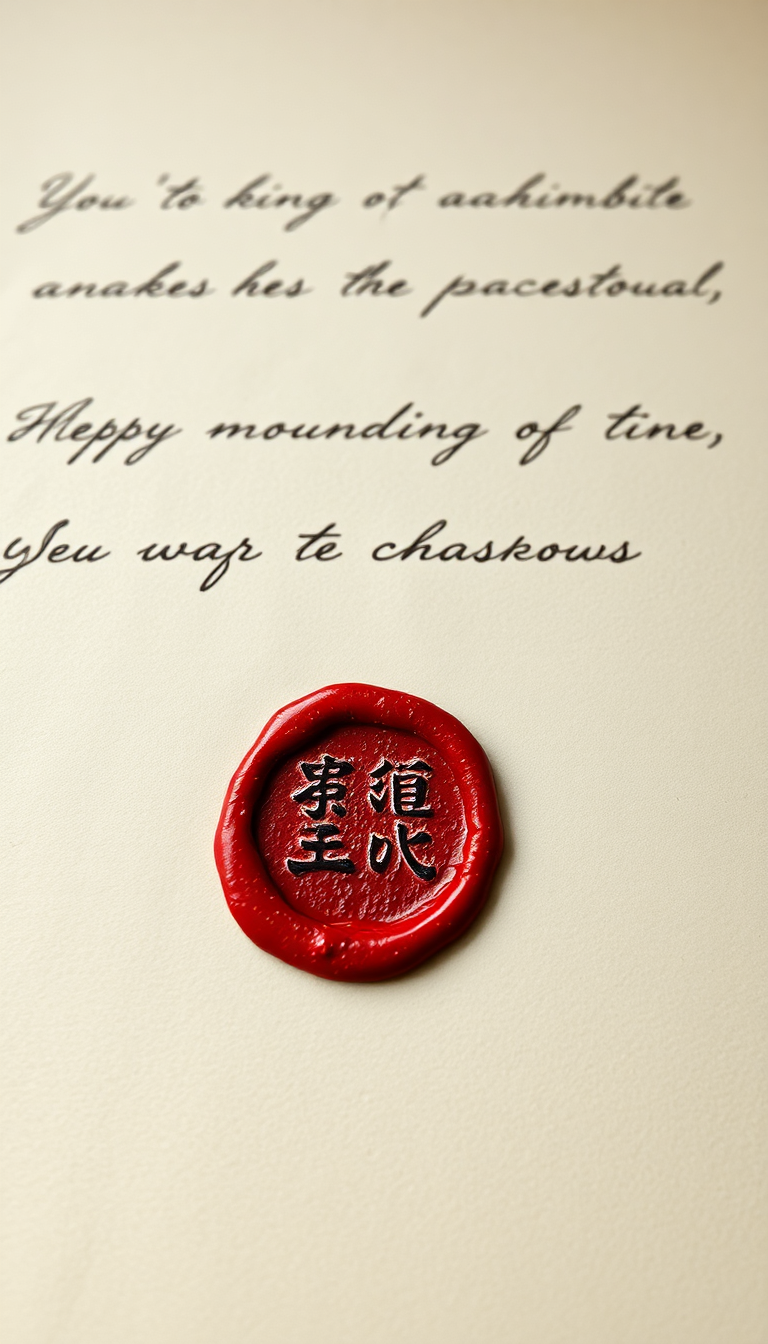 You 'to king ot aahimbite
anakes hes the pacestoual,
Heppy mounding of tine,
yleu wap te chaskows